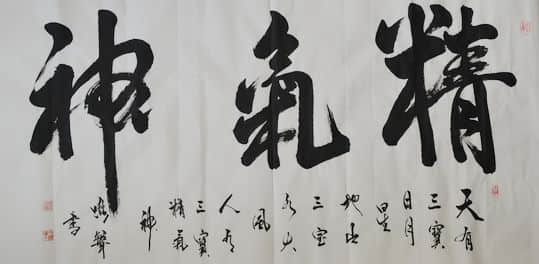 精氣神
天有
三寶
日月
星
地有
三宝
水火
風
人有
三寶
精氣
神